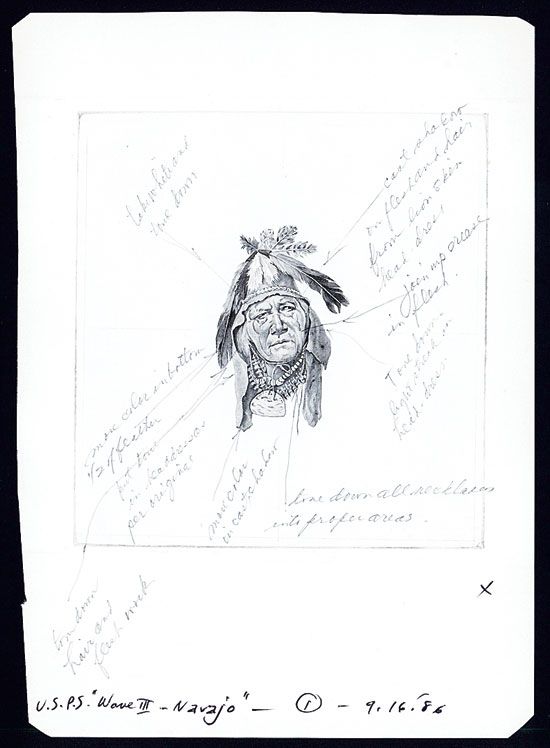 tone down
cast shadow
on flesh and hair
from lion skin
head dress
join up crease
in flesh.
Tone down
highlights in
head dress
more color on bottom
1/2 of feather
for tone
in headdress
per original
more color
in cast shadow
tone down all necklaces
into proper areas.
tone down
hair and
flesh
X
U.S.P.S. "Wave III - Navajo" - ① - 9.16.'86